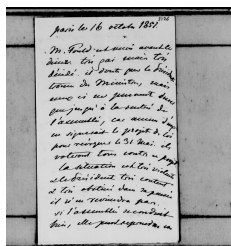 Paris le 16 octobre 1851
M. Fould est venu avant le
dîner très gai mais très
décidé. il doute que le
trouve des Ministres, mais
ceux ci ne peuvent durer
que jusqu'à la rentrée de
l'assemblée, car aucun d'eux
en signerait le projet de loi
pour révoquer le 31 Mai, ils
voteront tous contre ce projet
La situation est très violente
et le Président très content
et très obstiné dans sa pensée
il n'en reviendra pas.
si l'assemblée se conduit
bien, elle peut reprendre